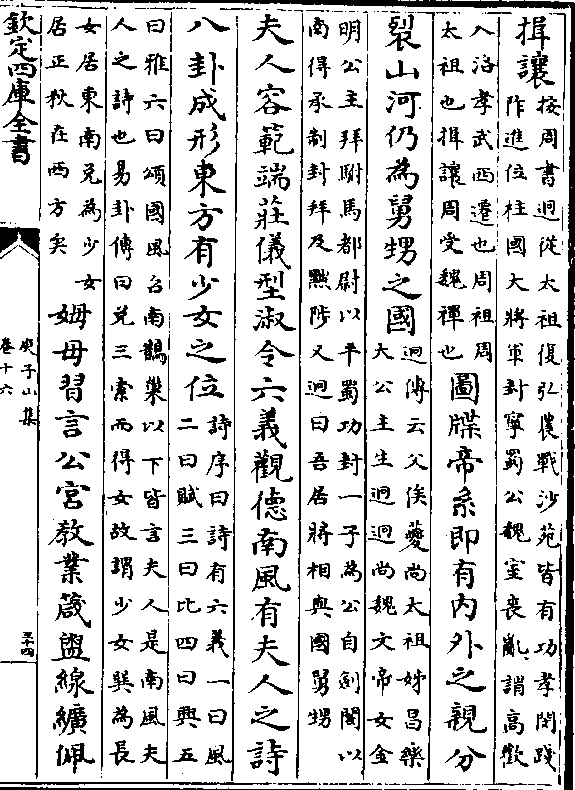 揖讓按周書迥從太祖復弘農戰沙苑皆有功孝閔踐
阼進位柱國大將軍封寧蜀公魏室喪亂謂高歡
入洛孝武西遷也周祖周
太祖也揖讓周受魏禪也圖牒帝系即有内外之親分
裂山河仍為舅甥之國迥傳云父俟藑尚太祖姊昌樂
大公主生迥迥尚魏文帝女金
明公主拜駙馬都尉以平蜀功封一子為公自劍閣以
南得承制封拜及黜陟又迥曰吾居將相與國舅甥
夫人容範端莊儀型淑令六義觀德南風有夫人之詩
八卦成形東方有少女之位詩序曰詩有六義一曰風
二曰賦三曰比四曰興五
曰雅六曰頌國風召南鵲巢以下皆言夫人是南風夫
人之詩也易卦傳曰兑三索而得女故謂少女巽為長
女居東南兑為少女
居正秋在西方矣姆母習言公宮教業箴盥線纊佩
欽定四庫全書
庾子山集
卷十六
三十四